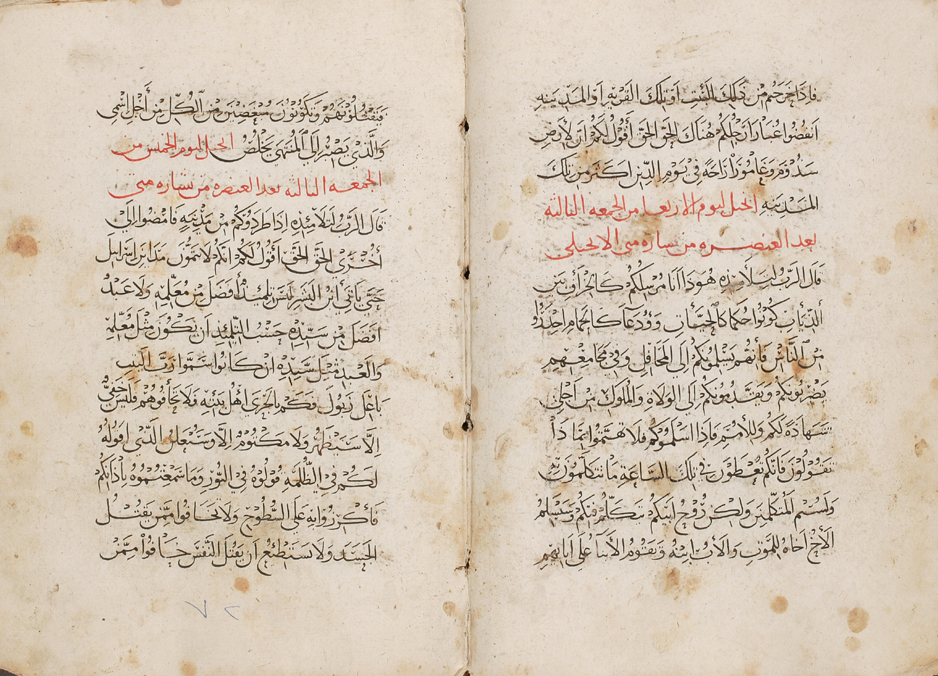 فاذا خرجتم من ذلك البيت او تلك القريه او المدينه
انفضوا غبار ارجلكم هناك الحق الحق اقول لكم ان لارض
سدوم وغامورا راحه في يوم الدين اكثر من تلك
المدينه انجيل ليوم الاربعا من الجمعه الثالثه
بعد العنصره من بشاره متى الانجيلي
قال الرب لتلاميذه هوذا انا مرسلكم كالخراف بين
الذياب كونوا حكما كالحيات وودعا كالحمام احذروا
من الناس فانهم يسلمونكم الى المحافل وفي مجامعهم
يضربونكم ويقدمونكم الي الولاه والملوك من اجلي
شهادة لكم وللأمم فاذا اسلموكم فلا تهتموا بما ذا
تقولون فانكم تعطون في تلك الساعة ما تتكلمون به
ولستم المتكلمين ولكن روح ابيكم يتكلم فيكم وسيسلم
الاخ اخاه للموت والأب ابنه ويقوم الأبنا على ابايهم
فيقتلونهم وتكونون مبغضين من الكل من أجل اسمي
والذي يصبر الى المنتهى يخلص انجيل ليوم الخميس من
الجمعه الثالثه بعد العنصره من بشاره متى
قال الرب لتلاميذه اذا طردوكم من مدينه فامضوا الى
أخرى الحق الحق أقول لكم انكم لا تتمون مداين اسراييل
حتى ياتي ابن البشر ليس تلميذ أفضل من معلمه ولا عبد
افضل من سيده حسب التلميذ ان يكون مثل معلمه
والعبد مثل سيده ان كانوا سموا رب البيت
باعل زبول فكم بالحرى أهل بيته فلا تخافوهم فليس خفي
الا سيظهر ولا مكتوم الا وسيعلن الذي اقوله
لكم في الظلمه قولوه في النور وما سمعتموه باذانكم
فأكرزوا به على السطوح ولا تخافوا ممن يقتل
الجسد ولا يستطيع ان يقتل النفس خافوا ممن
٧٢